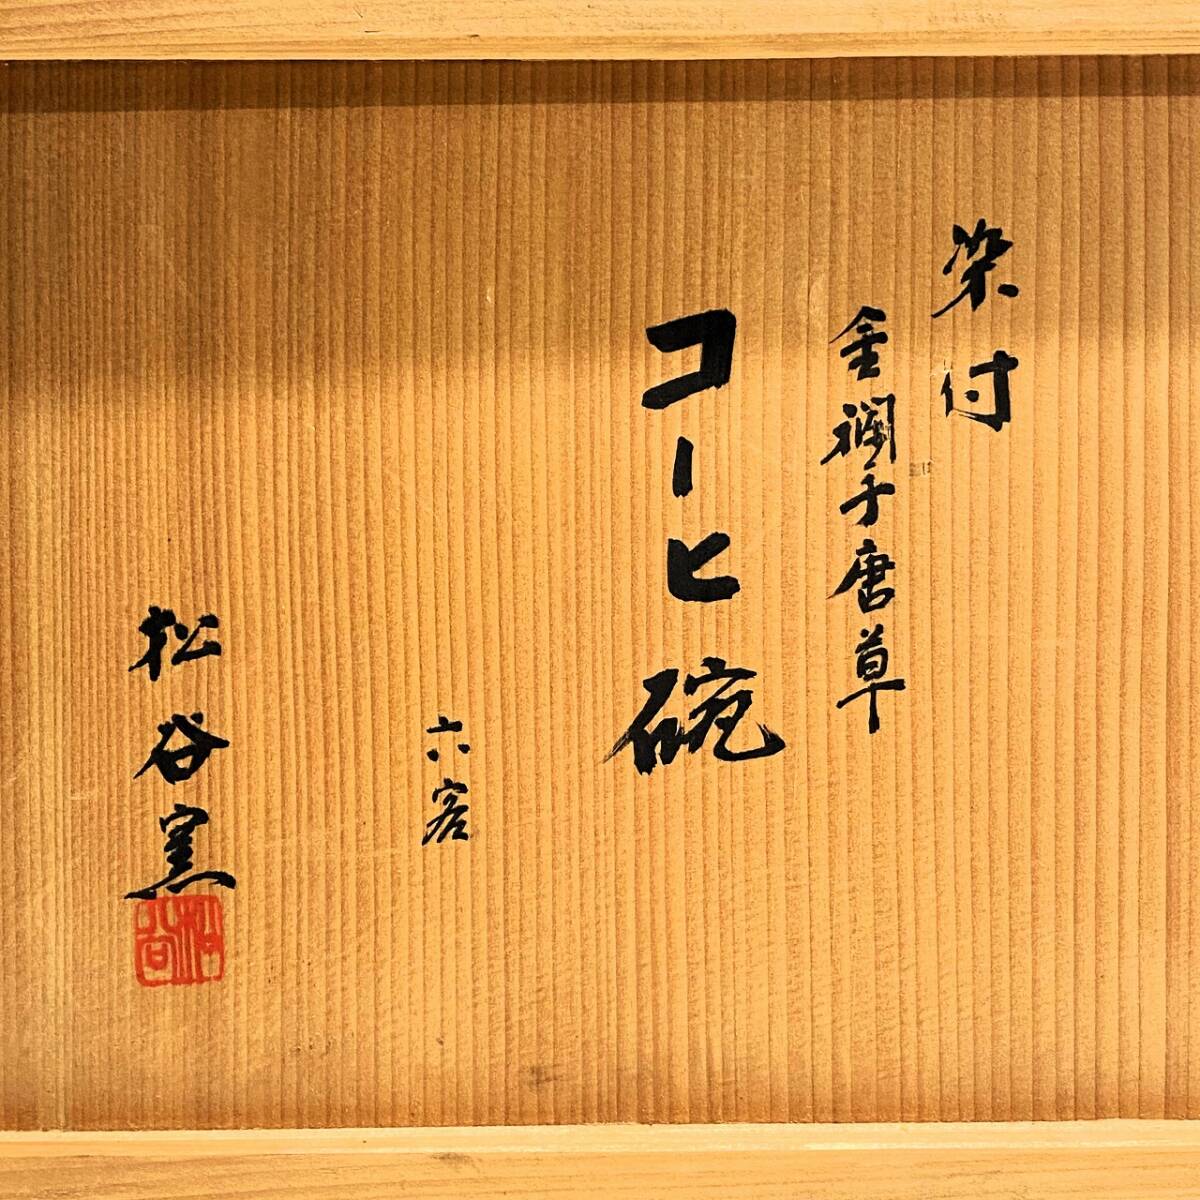 染付
金襴手唐草
コーヒ碗
六客
松谷窯
松谷